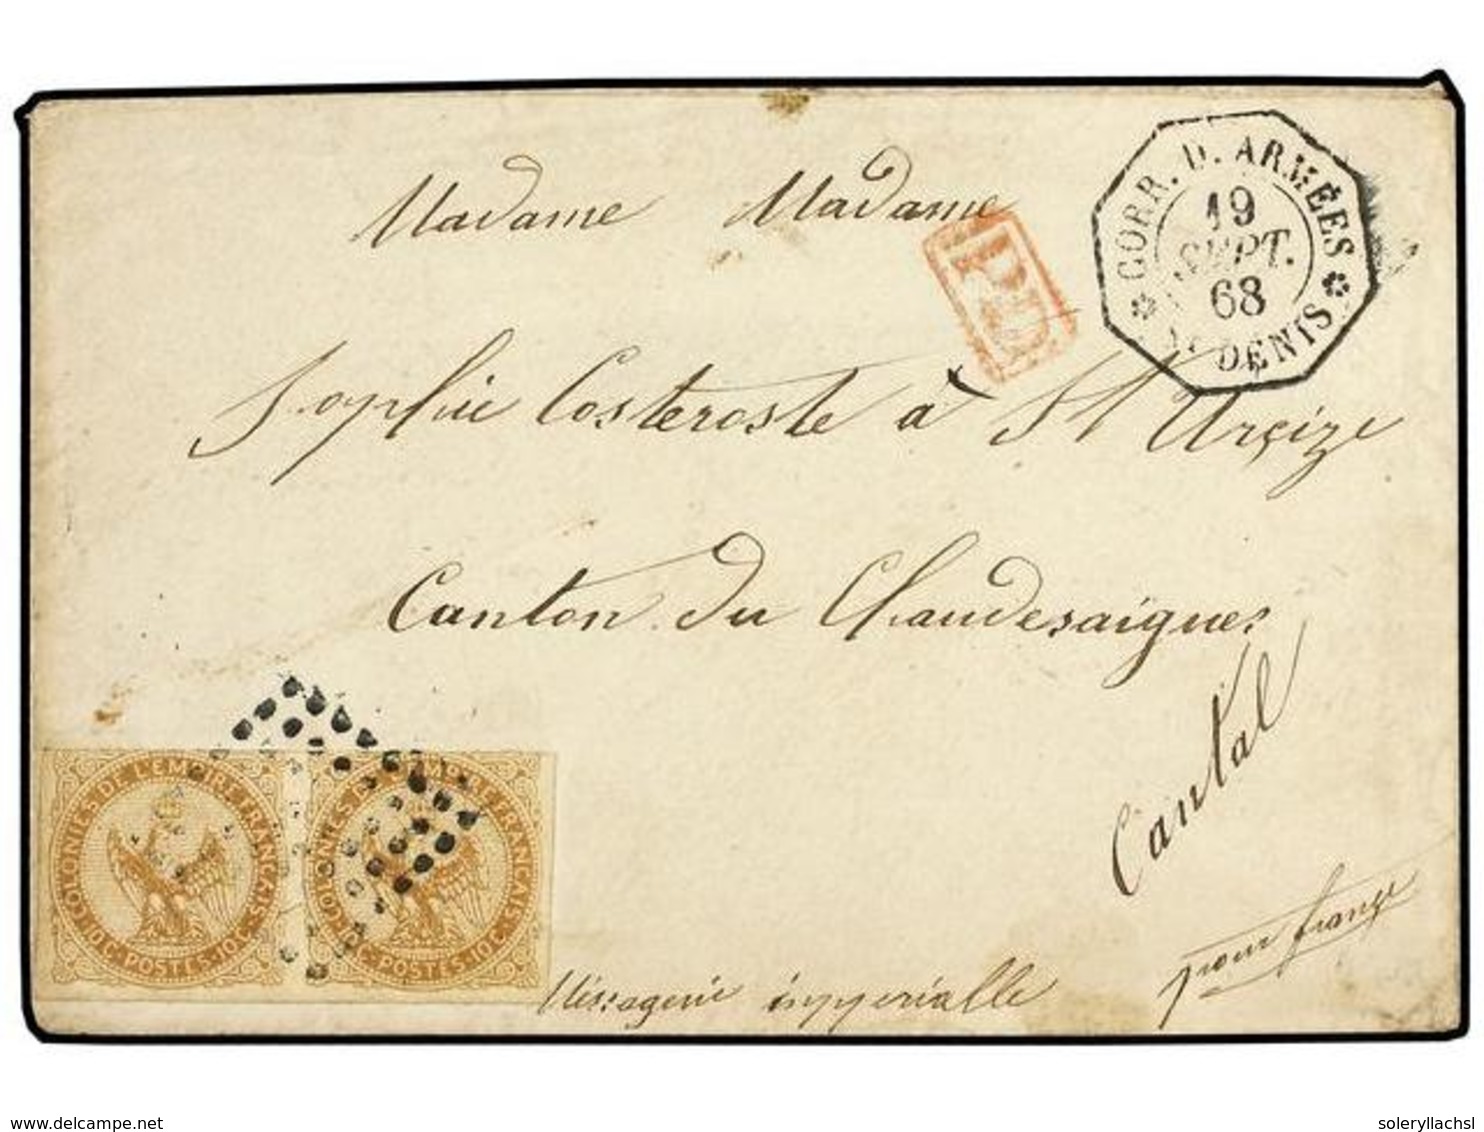 Madame Madame
CORR. D. ARMÉES
19
SEPT.
68
DENIS
PD
Sophie Costeroste à St Urçize
Canton du Chaudesaigues
Cantal
COLONIES DE L'EMPIRE FRANÇAIS
10 C. POSTES. 10 C.
COLONIES DE L'EMPIRE FRANÇAIS
10 C. POSTES. 10 C.
Messagerie impperialle
pour françe
www.delcampe.net
soleryllachsl